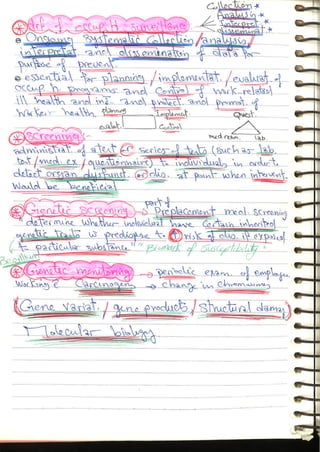 Collection *
Analysis *
Interpret *
disseminat. *
* Def of occup H surveillance
Ongoing systematic collection / analysis /
interpretat and dissemination of data for
purpose of prevent.
essential for planning / implementat. / evaluat. of
occup h programs and Control of work-related
ill health and inj. and protect. and promot. of
worker health.
planning Implement Quest.
evaluat Control med exam lab
* Screening:
administrat of a test or series of tests (such as lab.
test / med ex / questionnaire) to individuals in order to
detect organ dysfunct. or dis. at point when intervent.
would be beneficial
* Genetic screening part of Preplacement med. screening
determine whether individual have certain inherited
genetic traits w predispose to risk of dis. if exposed
to particular substance Biomark of Susceptibility
* Genetic monitoring periodic exam. of employee
working c Carcinogen change in chromosomes
(Gene variat. / gene products / structural damag)
Molecular biology